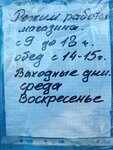 Режим работы
магазина.
с 9 до 18 ч.
обед с 14-15ч.
Выходные дни.
среда
Воскресенье